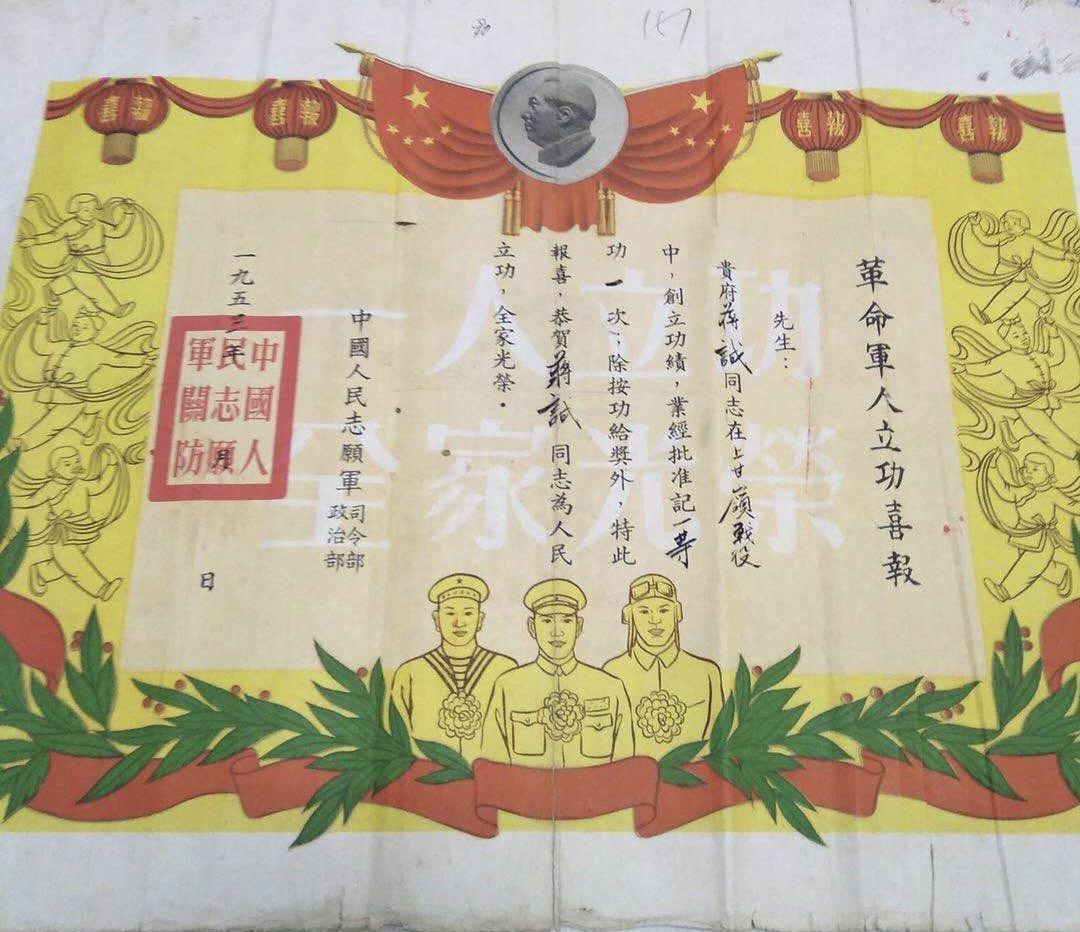 報喜
報喜
報喜
報喜
革命軍人立功喜報
先生：
貴府蔣誠同志在上甘嶺戰役
中，創立功績，業經批准記一等
功一次；除按功給獎外，特此
報喜，恭賀蔣誠同志為人民
立功，全家光榮。
中國人民志願軍司令部
政治部
一九五三年 月 日
中國人
民志願
軍關防
一人立功
全家光榮